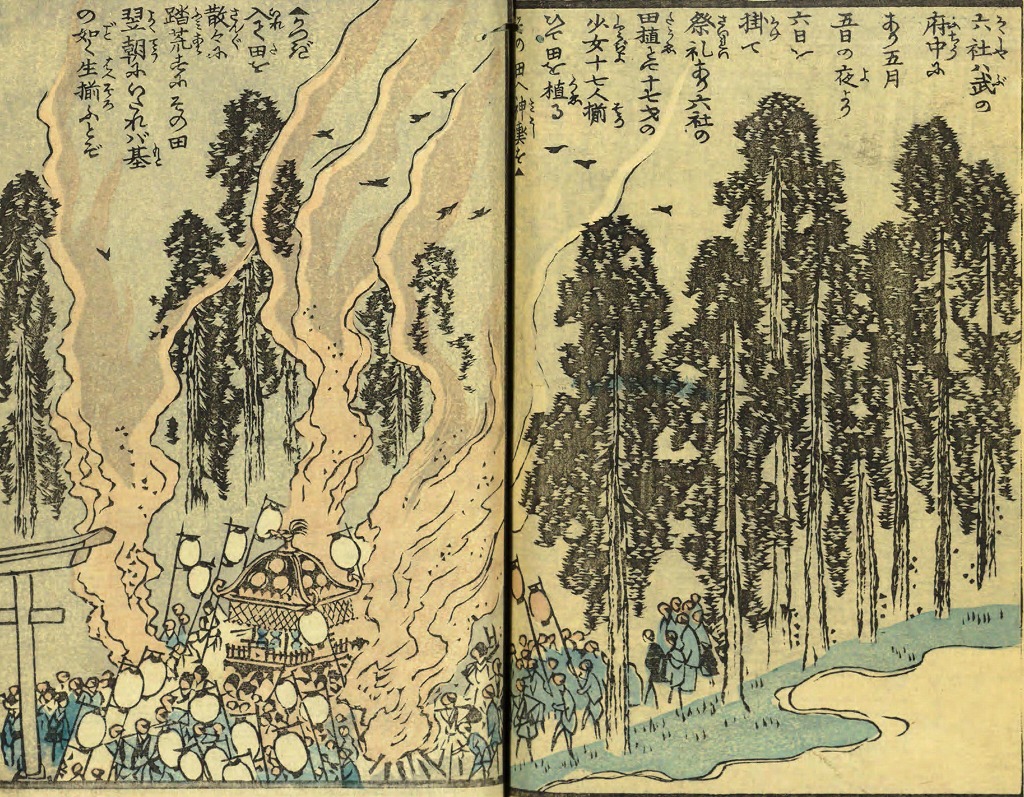 六社ハ武の
府中に
あり五月
五日の夜より
六日を
掛て
祭礼あり六社の
田植とて十七才の
少女十七人揃
ひて田を植る
其の田へ神輿を▲
▲かつぎ
入て田を
散々に
踏荒すに その田
翌朝にいたれバ基
の如く生揃ふとぞ